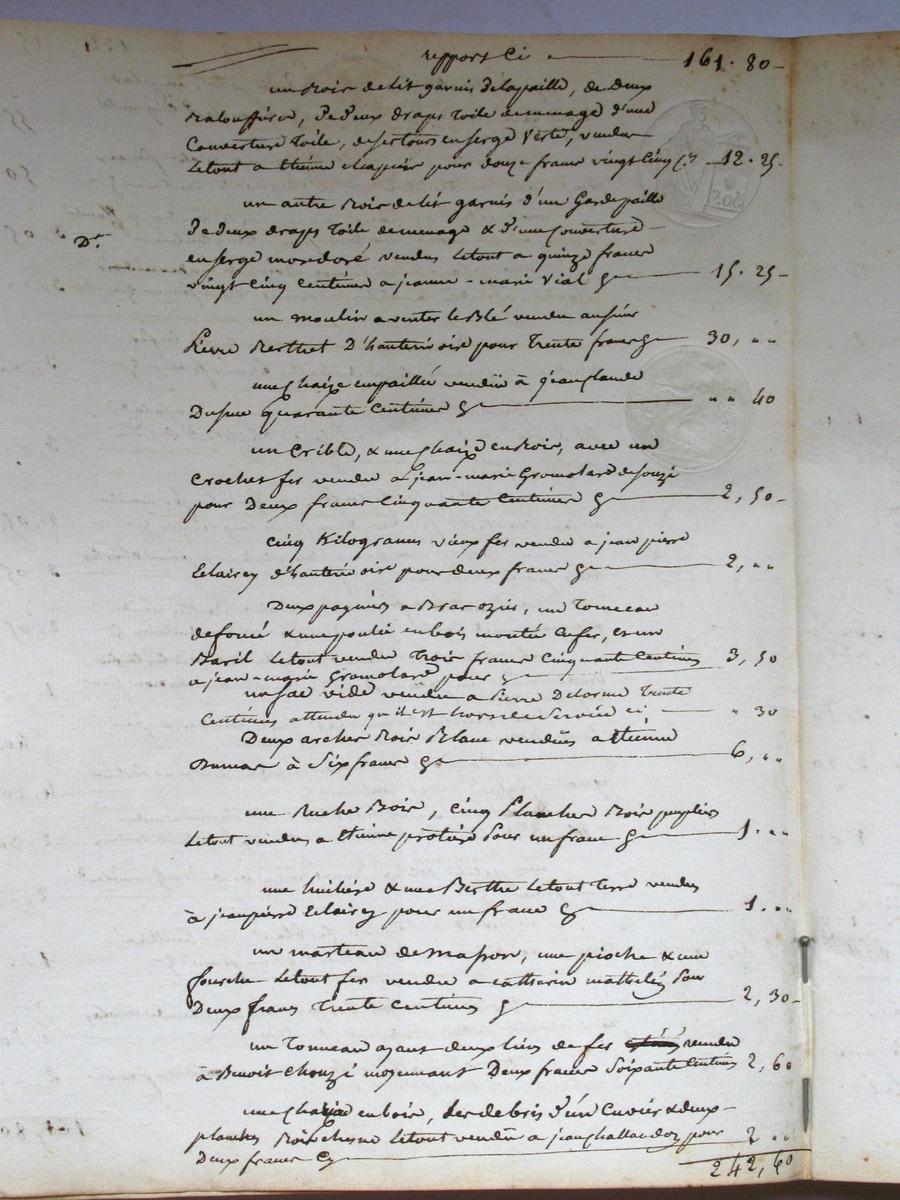 report Ci 161. 80
un Bois de Lit garnis de la paille, de Deux
de Deux draps Toile de menage d'une
Couverture Toile, de ses tours en serge Verte, vendu
Le tout a Etienne pour douze franc vingt Cinq 12. 25.
un autre Bois de Lit garnis d'un Gardepaille
Dt. de Deux draps Toile de menage & d'une Couverture
en serge mordoré vendus Le tout a quinze francs
vingt Cinq Centimes a jeanne-marie Vial 15. 25
un moulin a venter le Blé vendu au sieur
Pierre Berthet D'hauterivoire pour Trente francs 30, " "
une Chaize empaillée vendüe à jean Claude
quarante Centimes " " 40
un Crible, & une Chaize en Bois, avec un
Crochet fer vendu a jean-marie Gromolard de souzi
pour Deux francs Cinquante Centimes 2, 50
Cinq Kilogrames vieux fer vendu a jean pierre
Eclairey d'hauterivoire pour deux francs 2, " "
Deux pagniers a Bras ozier, un Tonneau
defoncé & une poulie en bois montée en fer, et un
Baril Le tout vendu Trois francs Cinquante Centimes 3, 50
a jean-marie Gromolard pour
un sac vide vendu a Pierre Delorme Trente
Centimes attendu qu'il est hors de Service ci " 30
Deux arches Bois Blanc vendües a Etienne
Dumas à Six francs 6, " "
une Ruche Bois, Cinq Planches Bois puplier
Le tout vendu a Etienne protière Pour un franc 1. " "
une huilière & une Berthe Le tout Terre vendus
à jean pierre Eclairey pour un franc 1. " "
un marteau de Masson, une pioche & une
fourche Le tout fer vendu a Catherin Pour
Deux francs Trente Centimes 2, 30
un Tonneau ayant deux liens de fer vendu
à Benoit Chouzi moyennant Deux francs Soixante Centimes 2, 60
une en bois, des debris d'un Cuvier & deux
planches Bois chesne Le tout vendu a jean pour 2 " "
Deux francs Cy
242, 60